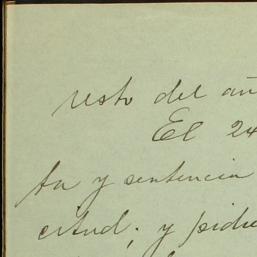 resto del añ
El 24
ta y sentencia
citud; y pidi